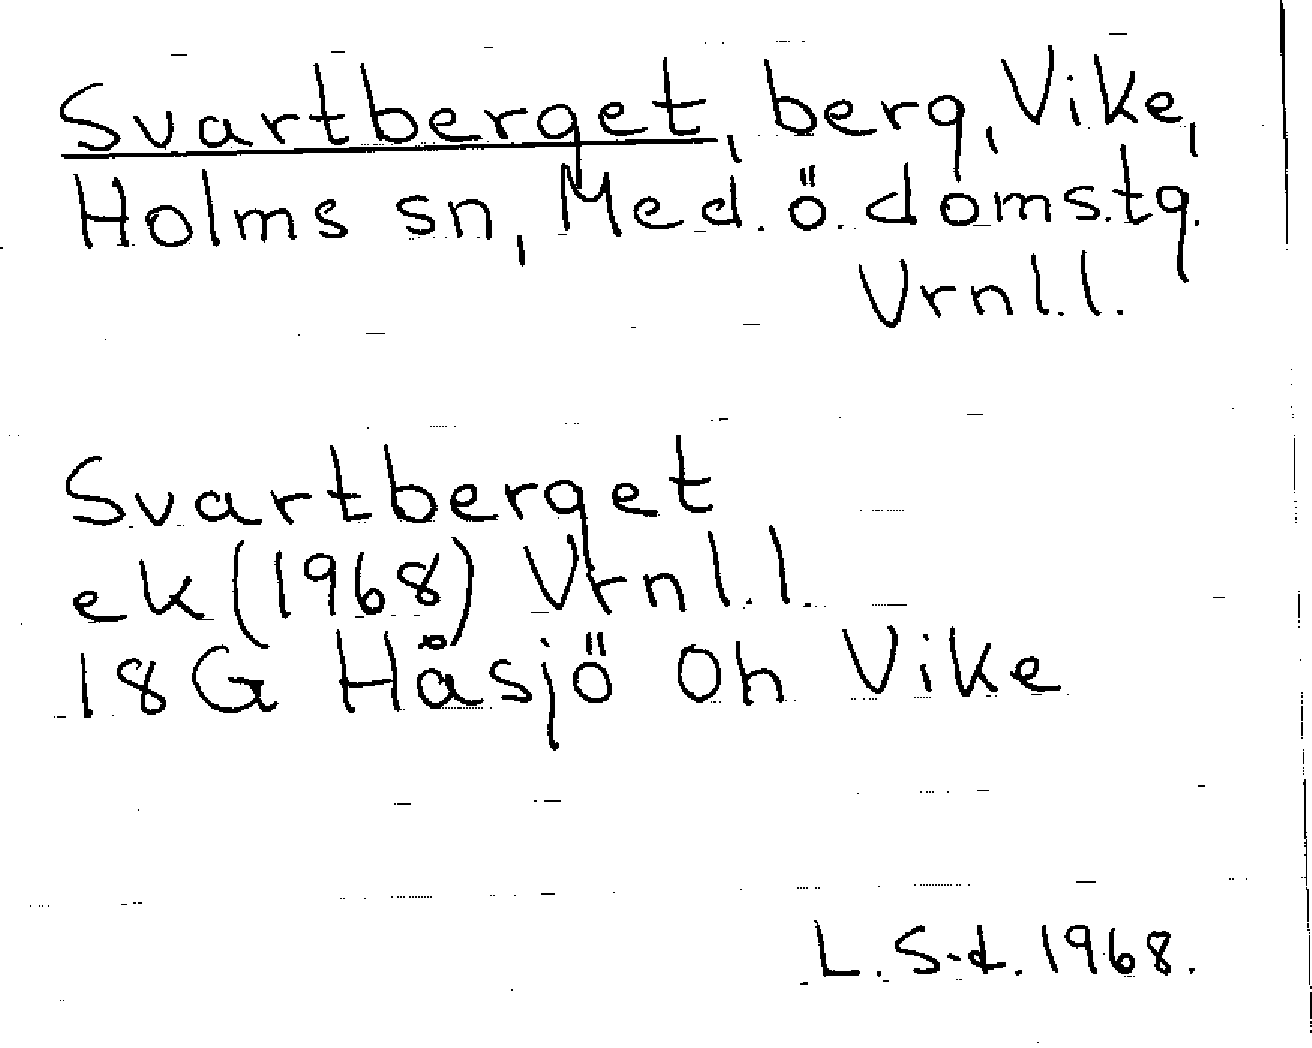 Svartberget, berg, Vike,
Holms sn, Med. ö. doms.tg.
Vrnl.l.
Svartberget
ek (1968) Vrnl.l.
18G Håsjö Oh Vike
L. S-d. 1968.